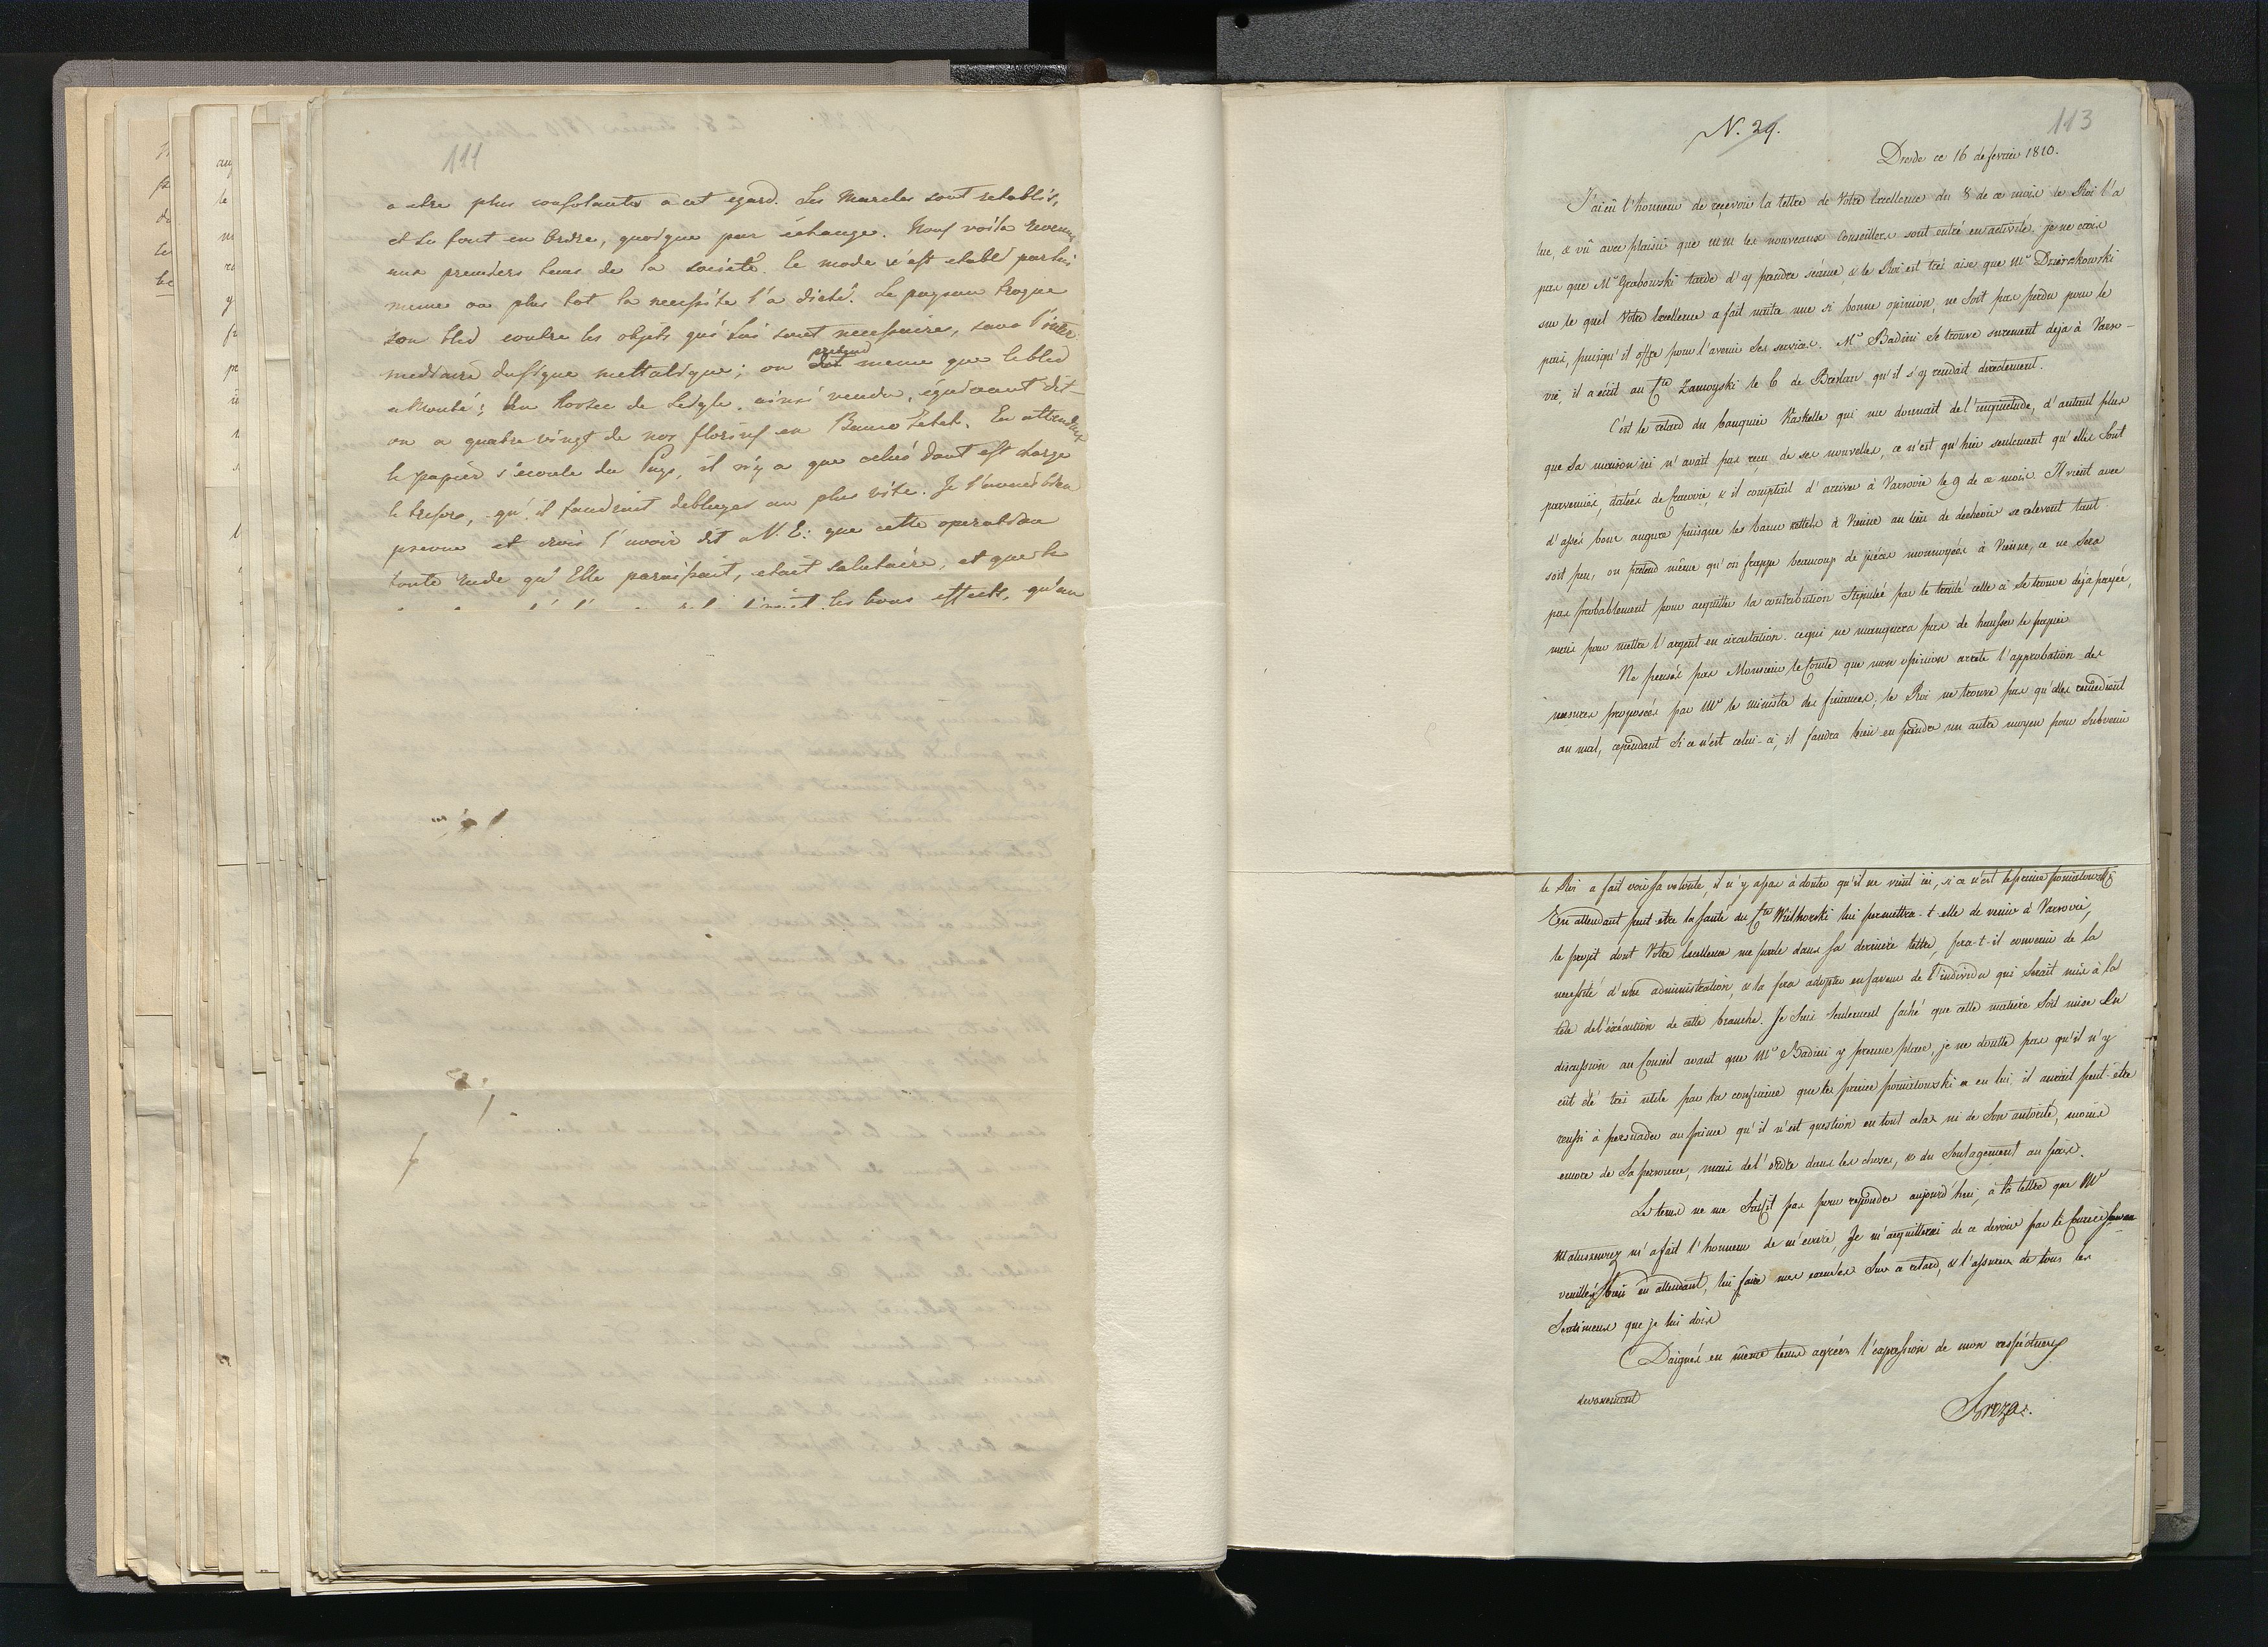 111
a etre plus consolantes a cet egard. Les Marches sont retablis,
et se font en Ordre, quoique par échange. Nous voila revenu
aux premiers tems de la societé. Ce mode s'est etabli par lui
meme ou plus tot la necessite l'a dicté. Le paysan troque
son bled contre les objets qui lui sont necessaire, sans l'inter
mediaire du signe mettalique; on pretend meme que le bled
a Monté; un Korzec de Seigle, ainsi vendu, équivaut dit-
on a quatre vingt de nos florins en Banco Zetel. En attendant
le papier s'ecoule du Pays, il n'y a que celui dont est charge
le tresor, qu'il faudroit debleyer au plus vite. Je l'avois bien
prevue et crois l'avoir dit a V. E: que cette operation
toute rude qu'Elle paroissoit, etait salutaire, et que le
les bons effects, qu'on
113
N. 29.
Dresde ce 16 de fevrier 1810.
J'ai eü l'honneur de reçevoir la lettre de Votre Excellence du 8 de ce mois le Roi l'a
lue, & vû avec plaisir que MM les nouveaux Conseillers sont entré en activité. je ne crois
pas que Mr Grabowski tarde d'y prendre séance, & le Roi est trés aise que Mr Dzierzkowski
sur le quel Votre Excellence a fait naitre une si bonne opinion, ne soit pas perdu pour le
pais, puisqu'il offre pour l'avenir ses services. Mr Badini se trouve surement deja à Varso-
vie, il a écrit au Cte Zamoyski le 6 de Breslau qu'il s'y rendait directement.
C'est le retard du banquier Kaskelle qui me donnait de l'inquietude, d'autant plus
que sa maison ici n'avait pas reçu de ses nouvelles, ce n'est qu'hier seulement qu'elles sont
parvenües, datées de Cracovie, & il comptait d'arriver à Varsovie le 9 de ce mois. Il vient avec
d'assés bons augures puisque les banco zettels à Vienne au lieu de dechoir se relevent tant
soit peu, on pretend même qu'on frappe beaucoup de pieces monnoyées à Vienne, ce ne sera
pas probablement pour acquitter la contribution stipulée par le traité celle ci se trouve déja payée,
mais pour mettre l'argent en circulation. ce qui ne manquera pas de hausser le papier
Ne pensés pas Monsieur le Comte que mon opinion arrete l'approbation des
mesures proposées par Mr le ministre des finances; le Roi ne trouve pas qu'elles remedient
au mal, cependant si ce n'est celui-ci, il faudra bien en prendre un autre moyen pour subvenir
le Roi a fait voir sa volonté, il n'y a pas à douter qu'il ne vient ici, si ce n'est le prince poniatowski
En attendant peut etre la santé du Cte Wielhorski lui permettra-t-elle de venir à Varsovie,
le projet dont Votre Excellence me parle dans sa derniere lettre, fera-t-il convenir de la
necessité d'une administration, & la fera adopter en faveur de l'individu qui serait mis à la
tête de l'éxécution de cette branche. Je suis seulement faché que cette matiere soit mise En
discussion au Conseil avant que Mr Badini y prenne place, je ne doutte pas qu'il n'y
eut été trés utile par la confiance que le prince poniatowski a en lui. il aurait peut-etre
reussi à persuader au prince qu'il n'est question en tout cela ni de son autorité, moins
encore de sa personne, mais de l'ordre dans les choses, & du soulagement au pais.
Le tems ne me suffit pas pour repondre aujourd'hui, à la lettre que Mr
Matuszewicz m'a fait l'honneur de m'ecrire, Je m'acquitterai de ce devoir par le Courier
veuillés bien en attendant, lui faire mes excuses sur ce retard, & l'assurer de tous les
Sentimens que je lui dois
Daignés en même tems agréer l'expression de mon respéctueux
devouement
Breza.